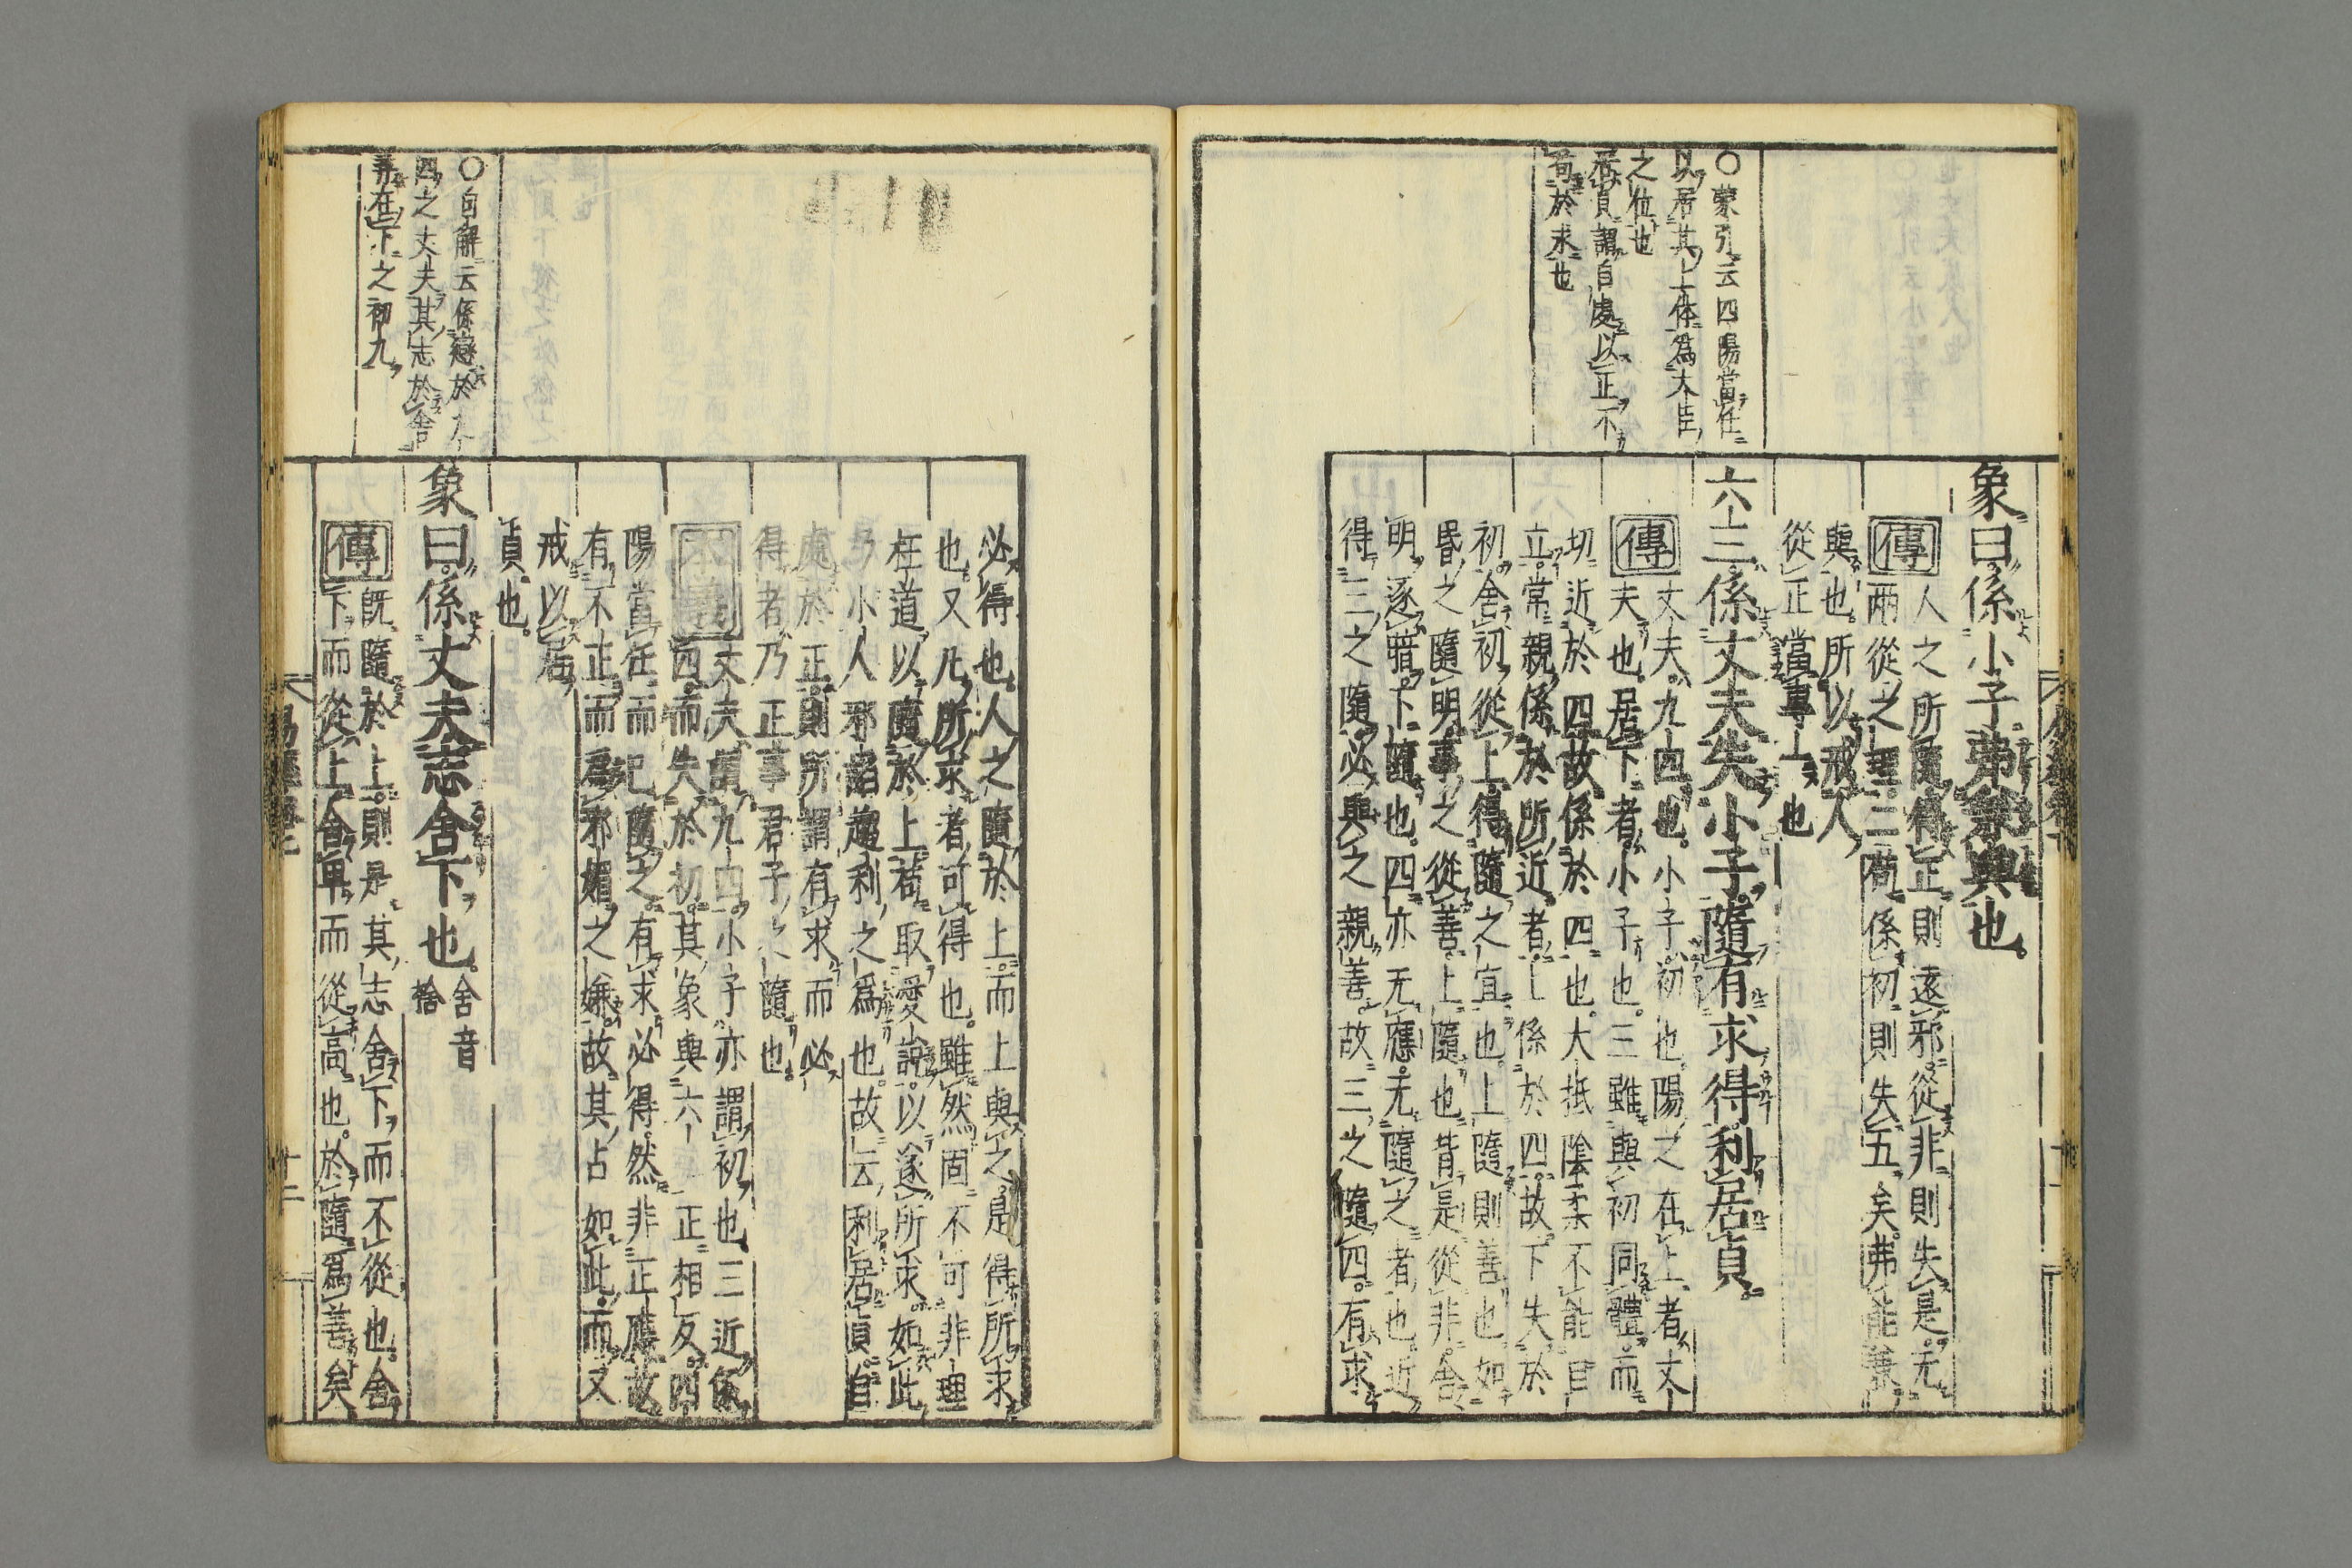 〇蒙引云四陽當任
以居其上体爲大臣
之位也
居貞謂自處以正不
苟於求也
象曰係小子弗兼與也
傳人之所隨得正則遠邪從非則失是无
兩從之理二苟係初則失五矣弗能兼
與也所以戒人
從正當專一也
六三係丈夫失小子隨有求得利居貞
傳丈夫九四也小子初也陽之在上者丈
夫也居下者小子也三雖與初同體而
切近於四故係於四也大抵陰柔不能自
立常親係於所近者上係於四故下失於
初舍初從上得隨之宜也上隨則善也如
昬之隨明事之從善上隨也背是從非舍
明逐暗下隨也四亦无應无隨之者也近
得三之隨必與之親善故三之隨四有求
必得也人之隨於上而上與之是得所求
也又凡所求者可得也雖然固不可非理
枉道以隨於上苟取愛說以遂所求如此
乃小人邪諂趨利之爲也故云利居貞自
處於正則所謂有求而必
得者乃正事君子之隨也
本義丈夫謂九四小子亦謂初也三近係
四而失於初其象與六二正相反四
陽當任而己隨之有求必得然非正應故
有不正而爲邪媚之嫌故其占如此而又
戒以居
貞也
〇自解云係戀於九
四之丈夫其志於舍
弃在下之初九
象曰係丈夫志舍下也舍音
捨
傳既隨於上則是其志舍下而不從也舍
下而從上舍卑而從高也於隨爲善矣
易經卷二
十二